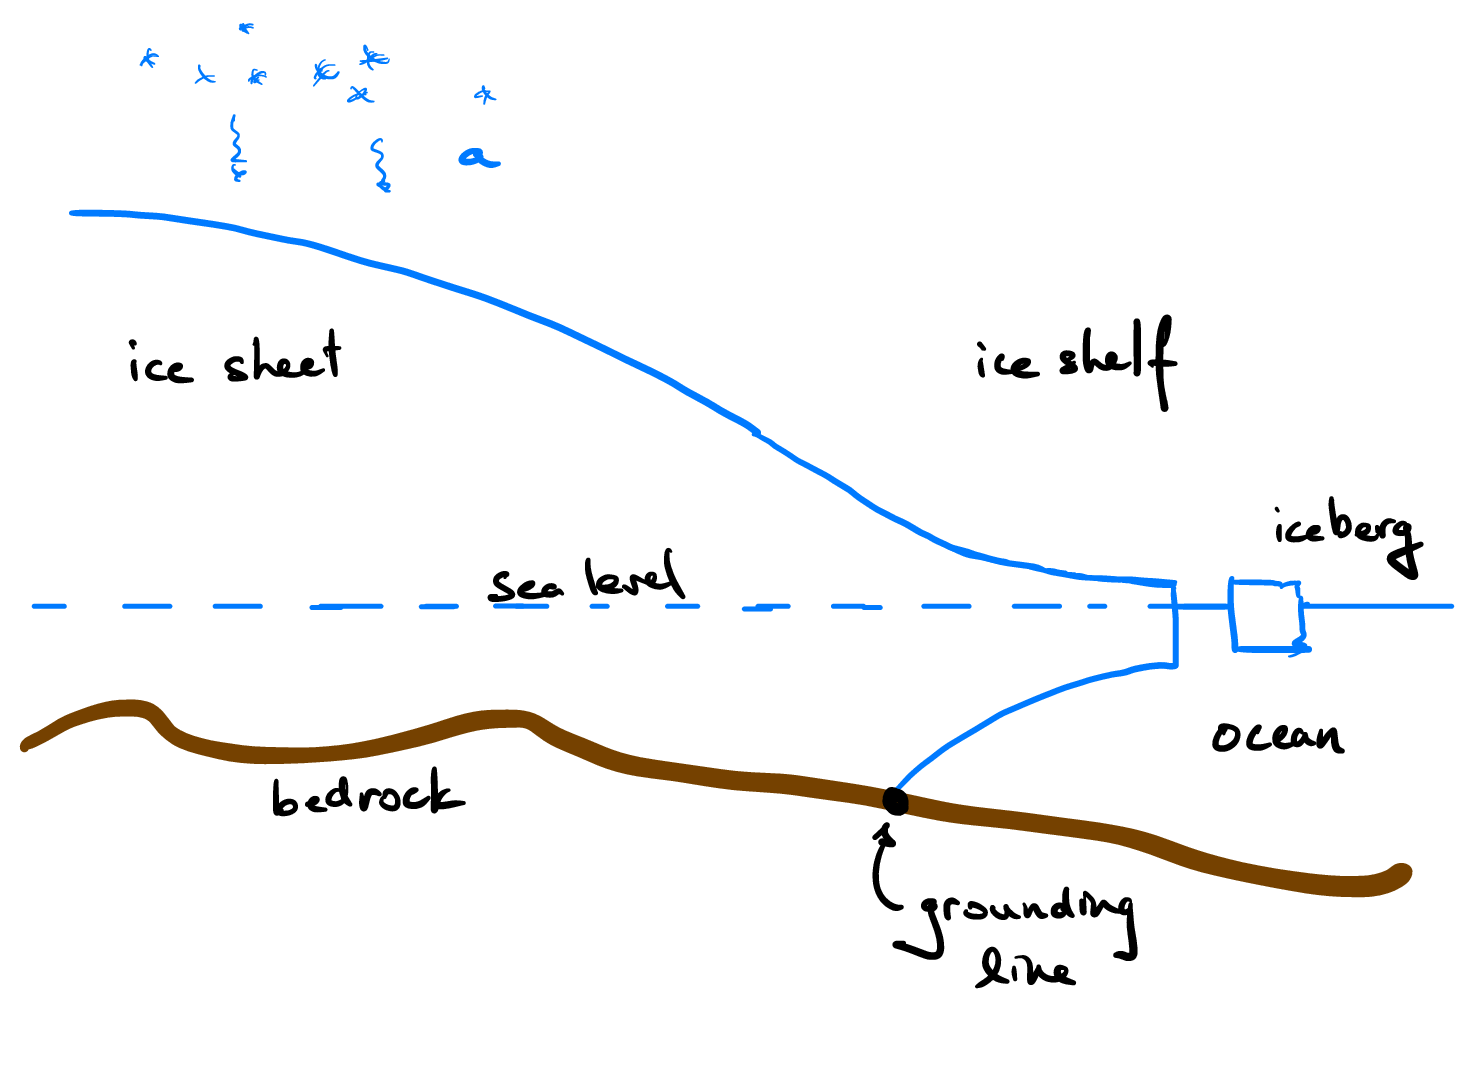 a
ice sheet
ice shelf
iceberg
sea level
ocean
bedrock
grounding
line